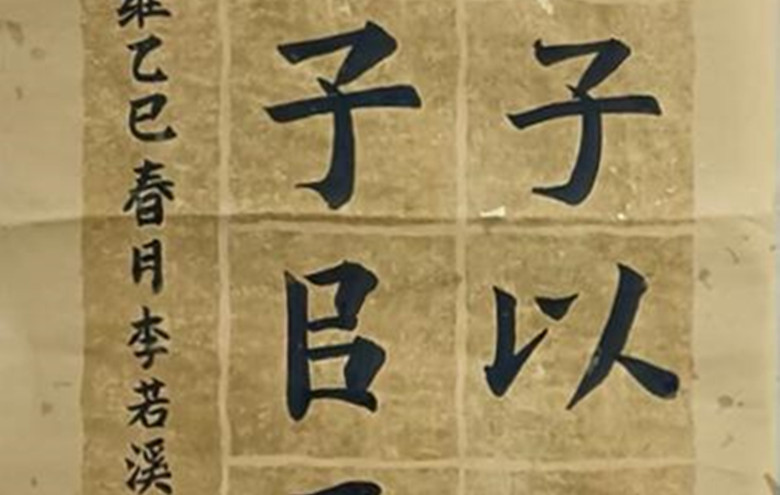 子以
子㠯
乙巳春月李若溪